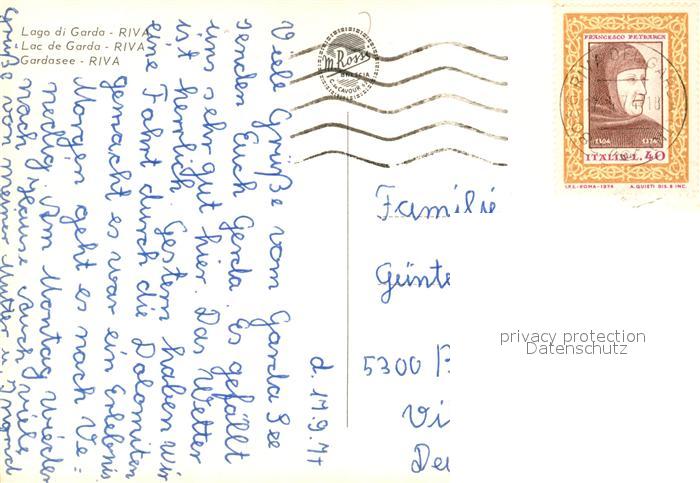 Lago di Garda - RIVA
Lac de Garda - RIVA
Gardasee - RIVA
M. Rossi
BRESCIA
C. da CAVOUR
FRANCESCO PETRARCA
1304 1374
ITALIA L. 40
I.P.S.-ROMA-1974 A. QUIETI DIS. E INC.
d. 17.9.74
Viele Grüße vom Garda See
senden Euch Gerda. Es gefällt
uns sehr gut hier. Das Wetter
ist herrlich. Gestern haben wir
eine Fahrt durch die Dolomiten
gemacht es war ein Erlebnis
Morgen geht es nach Ve=
nedig. Am Montag wieder
nach Hause. Auch viele
Grüße von meiner Mutter u. Ingrid
Familie
Günte
5300
Vi
De
privacy protection
Datenschutz